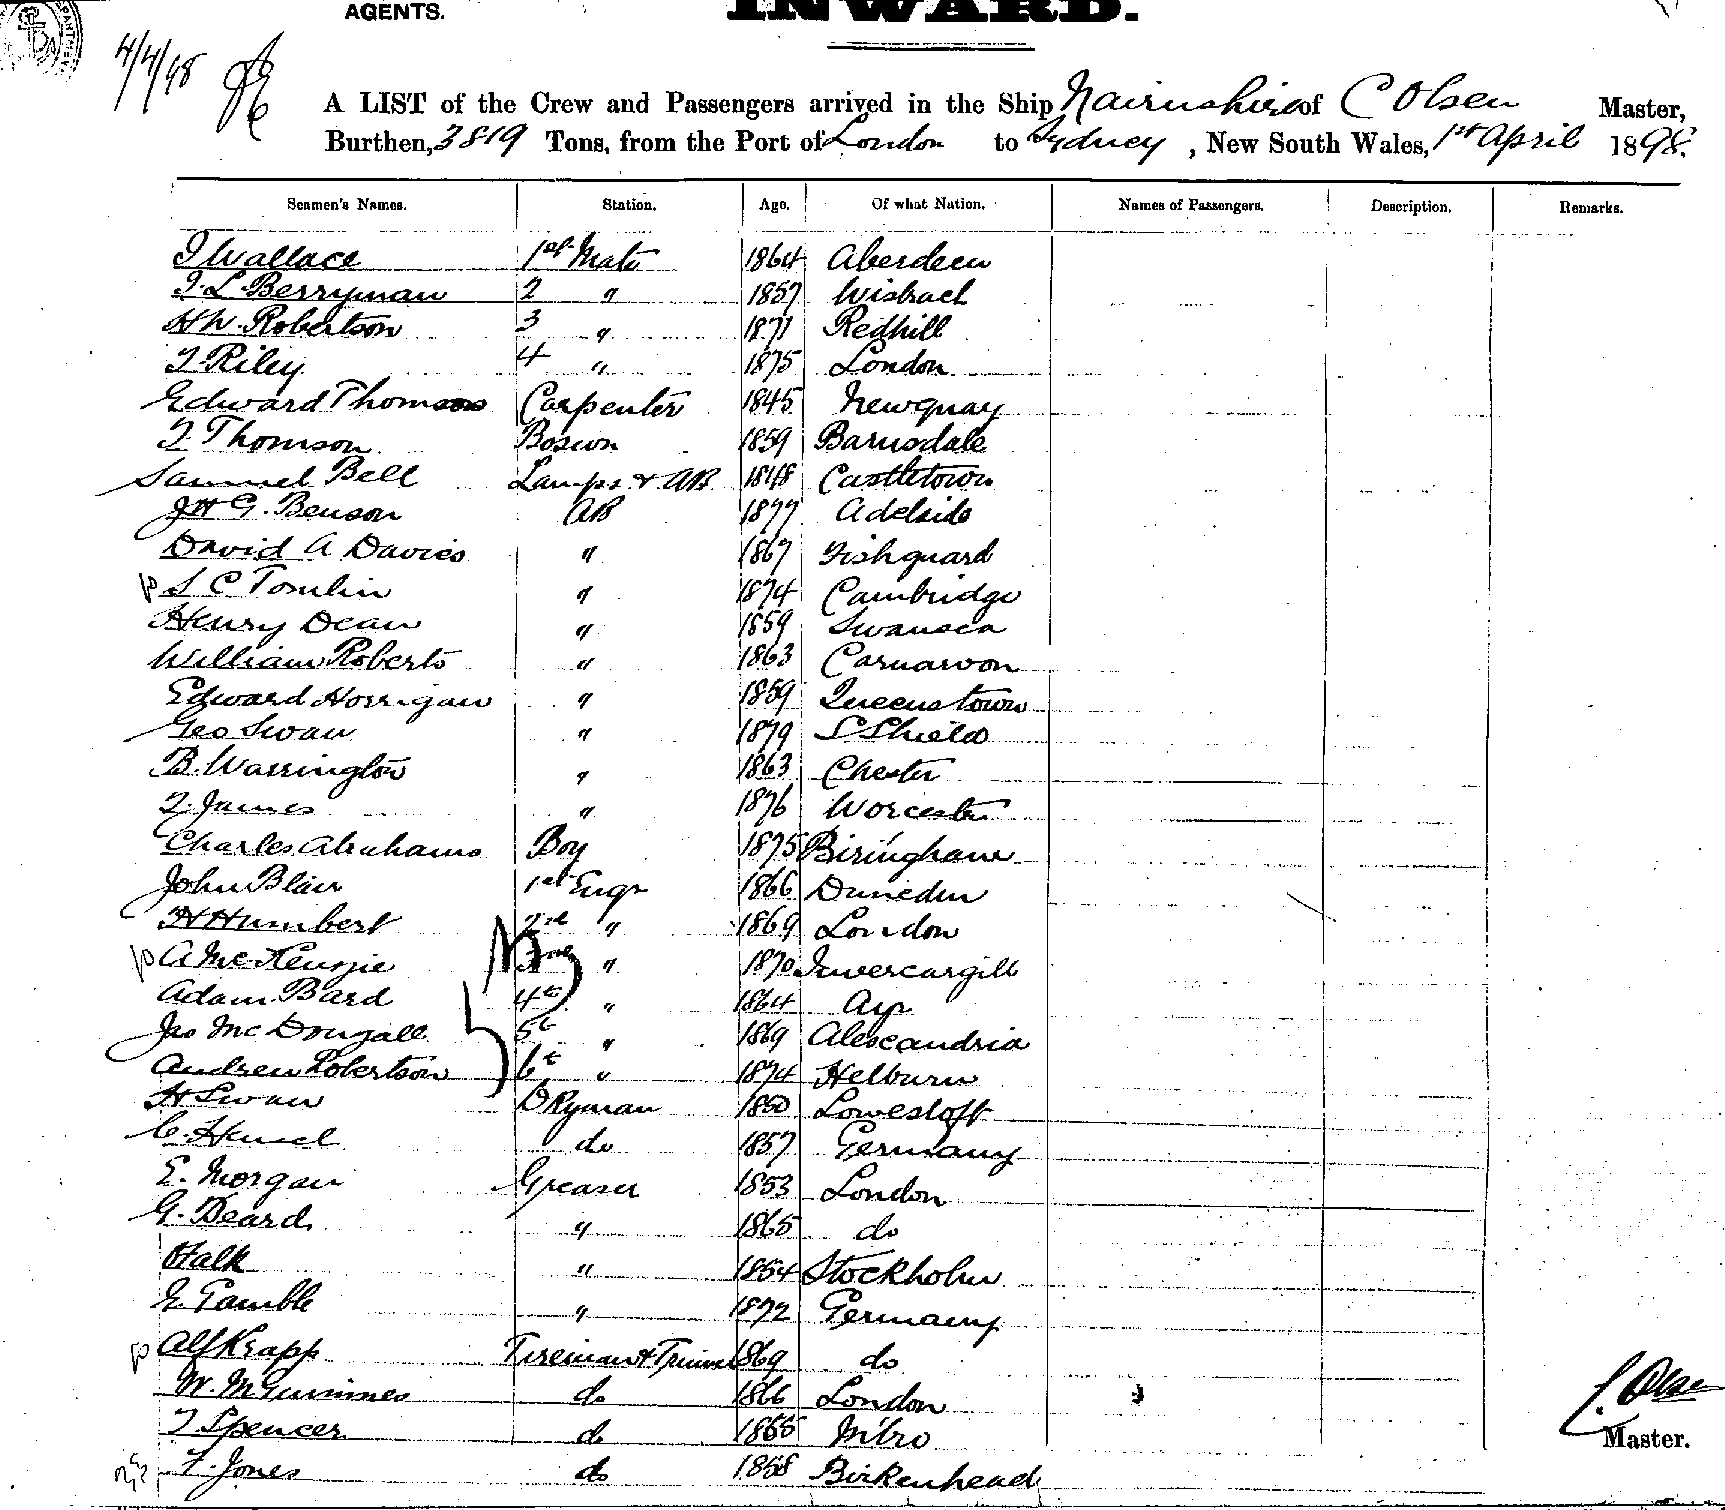 AGENTS.
INWARD.
4/4/98
A LIST of the Crew and Passengers arrived in the Ship Nairnshire of C Olsen Master,
Burthen, 3819 Tons, from the Port of London to Sydney, New South Wales, 1st April 1898.
Seamen's Names. Station. Age. Of what Nation. Names of Passengers. Description. Remarks.
J Wallace 1st Mate 1864 Aberdeen
J. L. Berryman 2 " 1857 Wisbach
H W. Robertson 3 " 1871 Redhill
T. Riley 4 " 1875 London
Edward Thomson Carpenter 1845 Newquay
T. Thomson Boswn 1859 Barnsdale
Samuel Bell Lamps & AB 1848 Castletown
J H G. Benson AB 1877 Adelaide
David A Davies " 1867 Fishguard
p S C Tomlin " 1874 Cambridge
Henry Dean " 1859 Swansea
William Roberts " 1863 Carnarvon
Edward Horrigan " 1859 Queenstown
Geo Swan " 1879 S Shields
B. Warrington " 1863 Chester
T. James " 1876 Worcester
Charles Abrahams Boy 1875 Biringham
John Blair 1st Engr 1866 Dunedin
H Humbert 2nd " 1869 London
p A McKenzie " 1870 Invercargill
Adam Bard 4th " 1864 Ayr
Jas McDougall 5th " 1869 Alexandria
Andrew Robertson 6th " 1874 Helburn
H Swan DKyman 1850 Lowestoft
C. Hensel do 1857 Germany
E. Morgan Greaser 1853 London
G. Beard " 1865 do
Halk " 1854 Stockholm
E. Gamble " 1872 Germany
p Alf Krapp Fireman & Trimmer 1869 do
W. McGuinnes do 1866 London
T Spencer do 1855
F. Jones do 1858 Birkenhead
C. Olsen
Master.